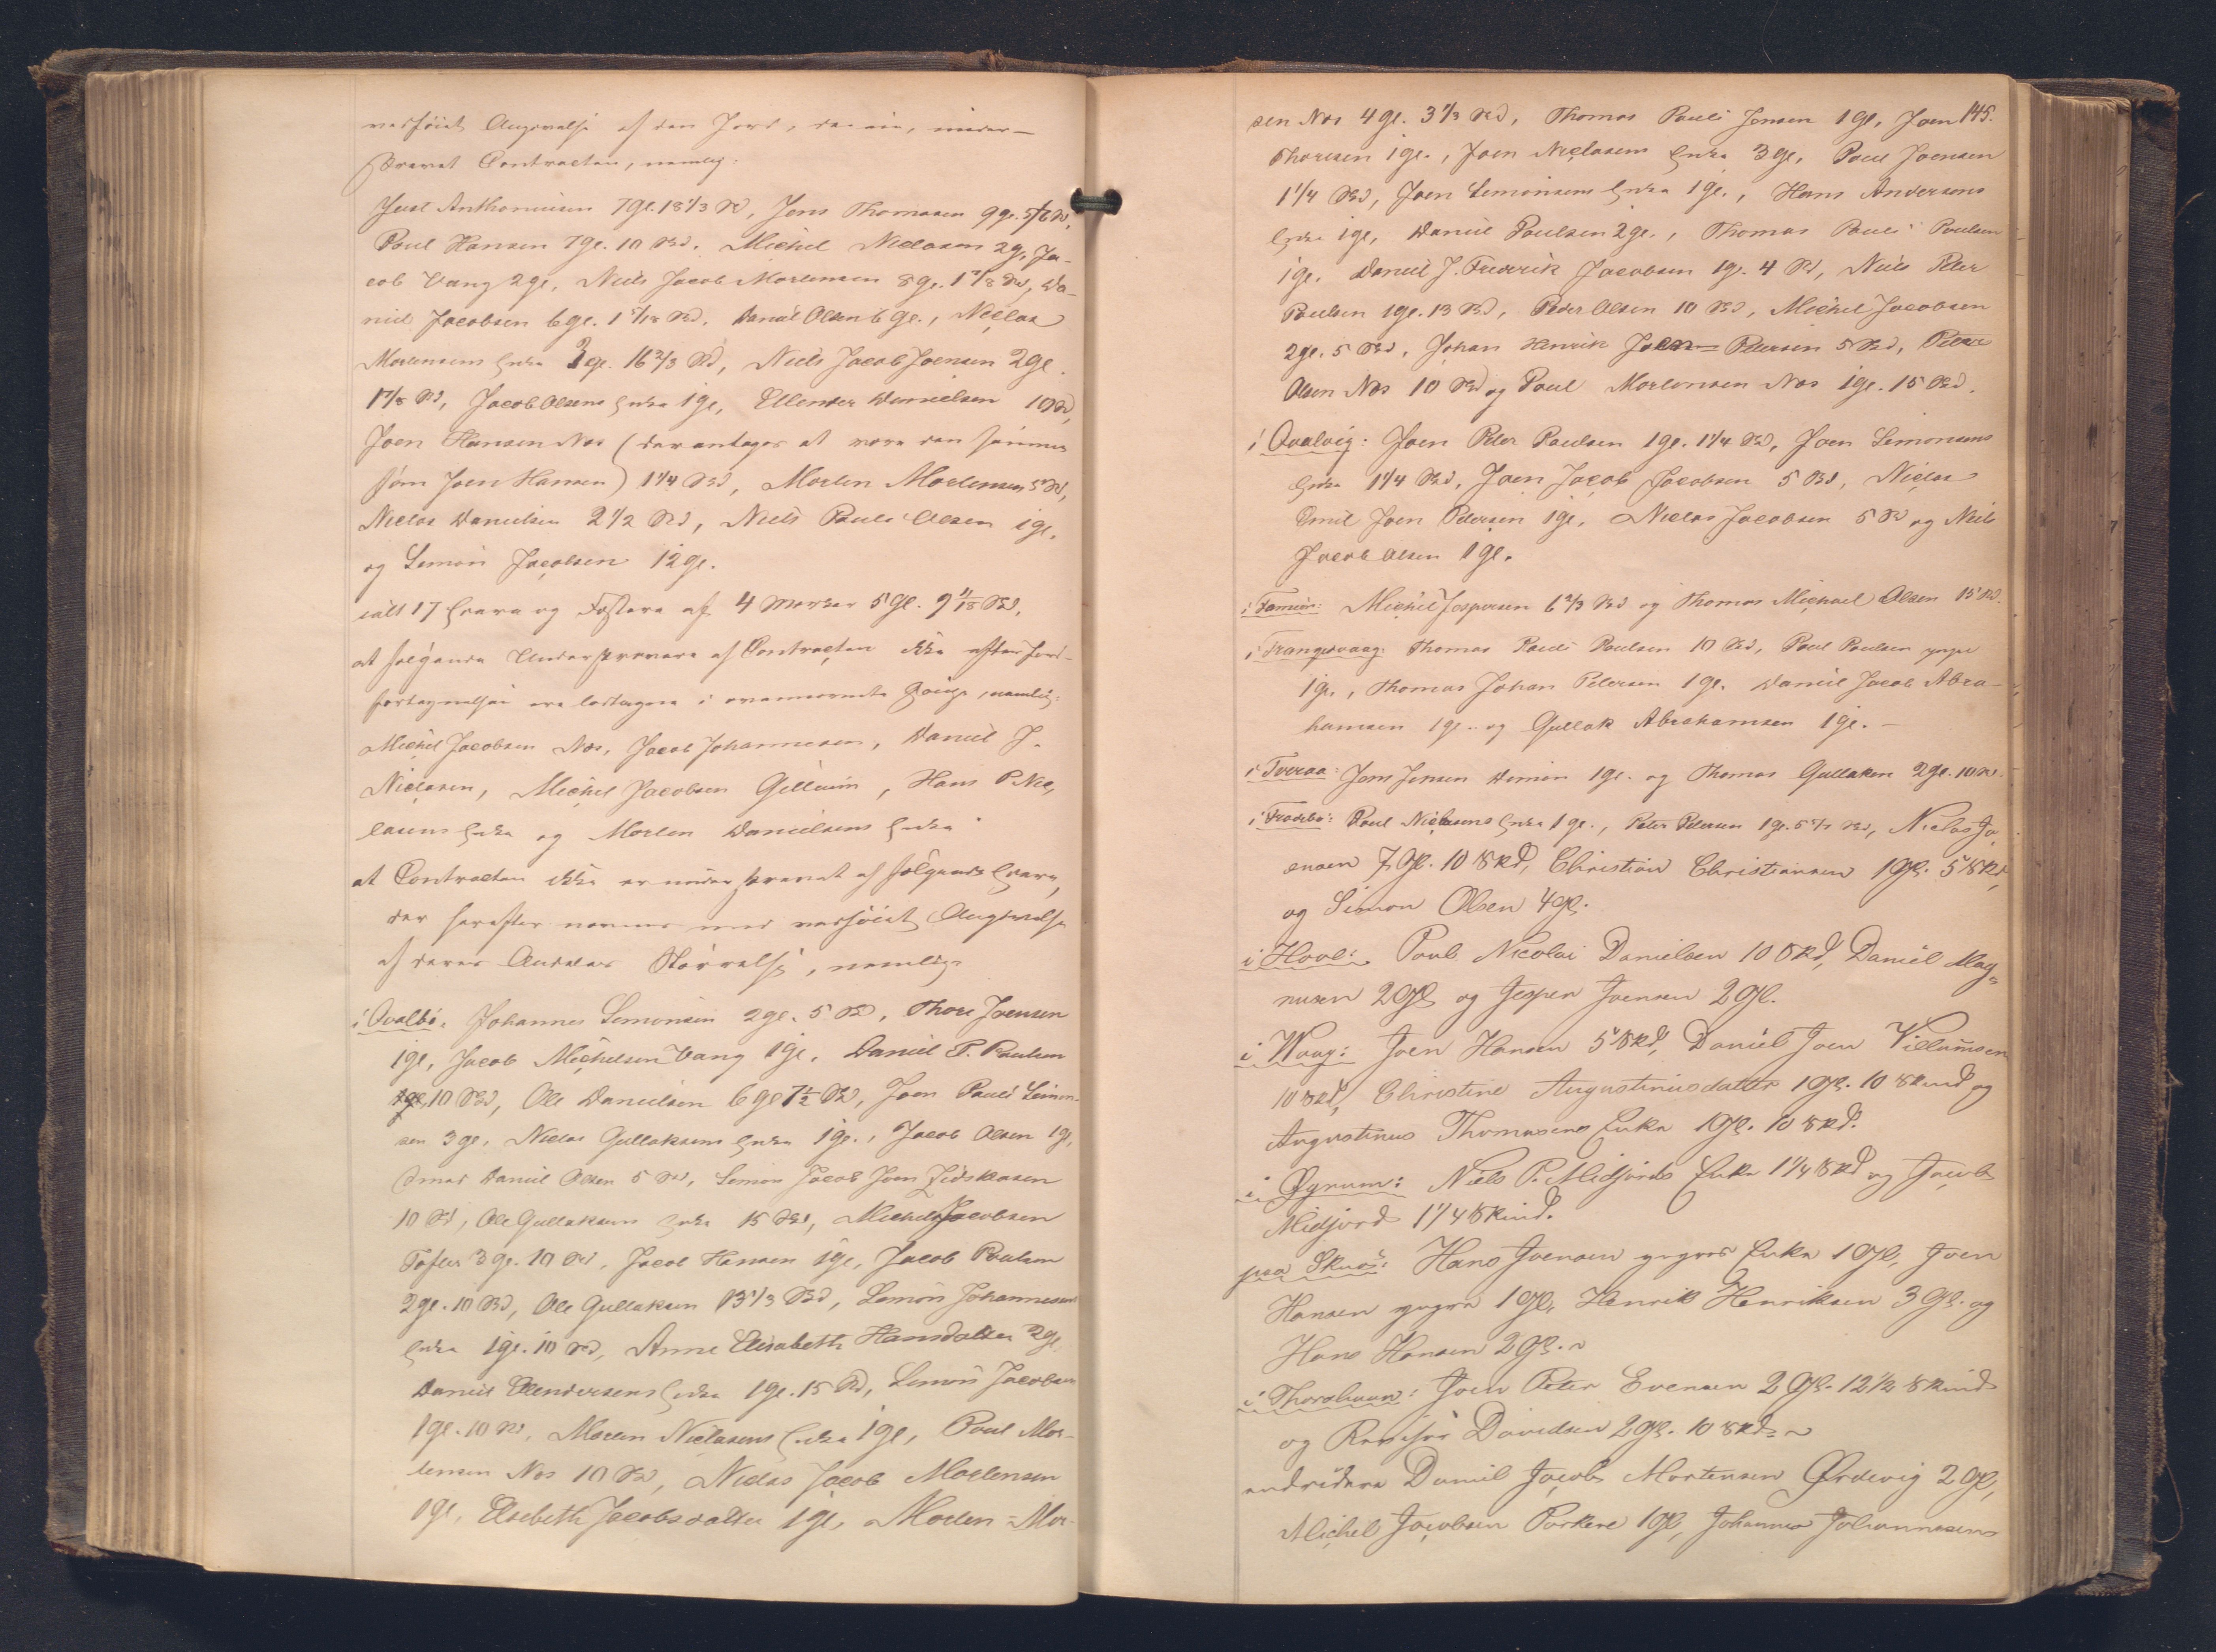 vedføiet Angivelse af den Jord, de eie, under-
skrevet Contracten, nemlig:
Just Anthoniusen 7 Gl. 18 1/3 Skd, Jens Thomasen 9 Gl. 5/6 Skd,
Poul Hansen 7 Gl. 10 Skd. Michel Niclasen 2 Gl, Ja-
cob Vang 2 Gl, Niels Jacob Mortensen 8 Gl. 1 7/8 Skd, Da-
niel Jacobsen 6 Gl. 1 5/18 Skd. Daniel Olsen 6 Gl., Niclas
Mortensens Enke 3 Gl. 16 2/3 Skd, Niels Jacob Joensen 2 Gl.
1 7/8 Skd, Jacob Olsens Enke 1 Gl, Ellender Danielsen 10 Skd,
Joen Hansen Næs (der antages at være den samme
som Joen Hansen) 1 1/4 Skd, Morten Mortensen 5 Skd,
Niclas Danielsen 2 1/2 Skd, Niels Pauli Olsen 1 Gl.
og Simon Jacobsen 12 Gl.
ialt 17 Eiere og Fæstere af 4 Marker 5 Gl. 9 11/18 Skd,
at følgende Underskrivere af Contracten ikke efter Jord-
fortegnelsen ere lodtagere i ovennævnte Grige, nemlig:
Michel Jacobsen Næs, Jacob Johannesen, Daniel J.
Niclasen, Michel Jacobsen Gilluim, Hans P. Nic-
lasens Enke og Morten Danielsens Enke
at Contracten ikke er underskrevet af følgende Eiere,
der herefter nævnes med vedføiet Angivelse
af deres Andeles Størrelse, nemlig:
i Qvalbø: Johannes Simonsen 2 Gl. 5 Skd, Thore Joensen
1 Gl, Jacob Michelsen Vang 1 Gl, Daniel P. Poulsen
10 Skd, Ole Danielsen 6 Gl 7 1/2 Skd, Joen Pauli Simon-
sen 3 Gl, Niclas Gullaksens Enke 1 Gl., Jacob Olsen 1 Gl,
Daniel Olsen 5 Skd, Simon Jacob Joen Zidskasen
10 Skd, Ole Gullaksens Enke 15 Skd, Michel Jacobsen
Tofter 3 Gl. 10 Skd, Jacob Hansen 1 Gl, Jacob Poulsen
2 Gl. 10 Skd, Ole Gullaksen 13 1/3 Skd, Simon Johannesens
Enke 1 Gl. 10 Skd, Anne Elisabeth Hansdatter 2 Gl,
Daniel Ellendersens Enke 1 Gl. 15 Skd, Simon Jacobsen
1 Gl. 10 Skd, Morten Niclasens Enke 1 Gl, Poul Mor-
tensen Næs 10 Skd, Niclas Jacob Mortensen
1 Gl, Elsebeth Jacobsdatter 1 Gl, Morten Mor-
145.
sen Næs 4 Gl. 3 1/3 Skd, Thomas Pauli Jensen 1 Gl, Joen
Thoresen 1 Gl., Joen Niclasens Enke 3 Gl, Poul Joensen
1 1/4 Skd, Joen Simonsens Enke 1 Gl., Hans Andersens
Enke 1 Gl, Daniel Poulsen 2 Gl., Thomas Pauli Poulsen
1 Gl. Daniel J. Frederik Jacobsen 1 Gl. 4 Skd, Niels Peter
Poulsen 1 Gl. 13 Skd, Peder Olsen 10 Skd, Michel Jacobsen
2 Gl. 5 Skd, Johan Henrik Joen Petersen 5 Skd, Peter
Olsen Næs 10 Skd og Poul Mortensen Næs 1 Gl. 15 Skd.
i Qvalvig: Joen Peter Poulsen 1 Gl. 1 1/4 Skd, Joen Simonsens
Enke 1 1/4 Skd, Joen Jacob Jacobsen 5 Skd, Niclas
Emil Joen Petersen 1 Gl, Niclas Jacobsen 5 Skd og Niels
Jacob Olsen 1 Gl.
i Famien: Michel Jespersen 6 2/3 Skd og Thomas Michael Olsen 15 Skd.
i Trangisvaag: Thomas Pauli Poulsen 10 Skd, Poul Poulsen yngre
1 Gl., Thomas Johan Petersen 1 Gl. Daniel Jacob Abra-
hamsen 1 Gl. og Gullak Abrahamsen 1 Gl. -
i Tveraa: Jens Jensen Dimon 1 Gl. og Thomas Gullaksen 2 Gl. 10 Skd.
i Frodebø: Poul Niclasens Enke 1 Gl., Peter Petersen 1 Gl. Skd, Niclas Jo-
ensen 7 Gl. 10 Skd, Christian Christiansen 1 Gl. 5 Skd,
og Simon Olsen 4 Gl.
i Hove: Poul Nicolai Danielsen 10 Skd, Daniel Mag-
nusen 2 Gl og Jesper Joensen 2 Gl.
i Waag: Joen Hansen 5 Skd, Daniel Joen Villumsen
10 Skd, Christine Augustinusdatter 1 Gl. 10 Skind og
Augustinus Thomasens Enke 1 Gl. 10 Skd.
i Øgrum: Niels P. Midjords Enke 1 1/4 Skd og Jacob
Midjord 1 1/4 Skind.
paa Skuø: Hans Joensen yngres Enke 1 Gl, Joen
Hansen yngre 1 Gl, Henrik Henriksen 3 Gl. og
Hans Hansen 2 Gl.
i Thorshavn: Joen Peter Evensen 2 Gl. 12 1/2 Skind
og Davidsen 2 Gl. 10 Skd.
endvidere Daniel Jacob Mortensen Ørdevig 2 Gl,
Michel Jacobsen Porkere 1 Gl, Johannes Johannesens